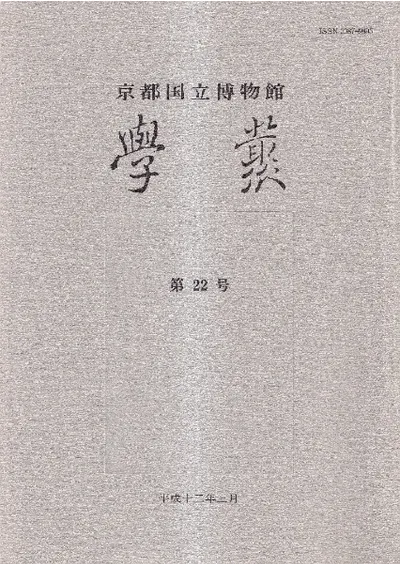 京都国立博物館
學叢
第 22 号
平成十二年三月